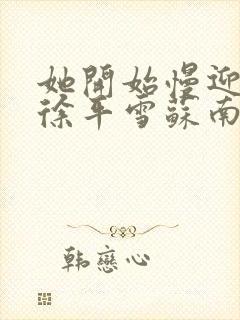 她開始慢迎
徐平雪蘇南
韩戀心